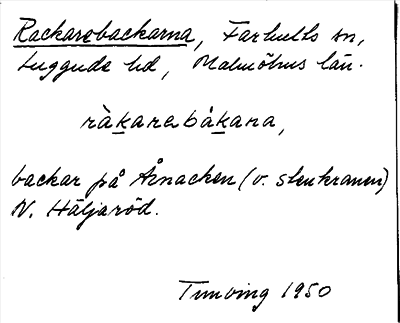 Rackarebackarna, Farhults sn,
Luggude hd, Malmöhus län.
ràkarebåkana,
backar på Åsnacken (v. stenkranen)
N. Häljaröd.
1950